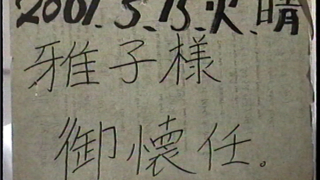 2001.5.15.火.晴
雅子様
御懐任。